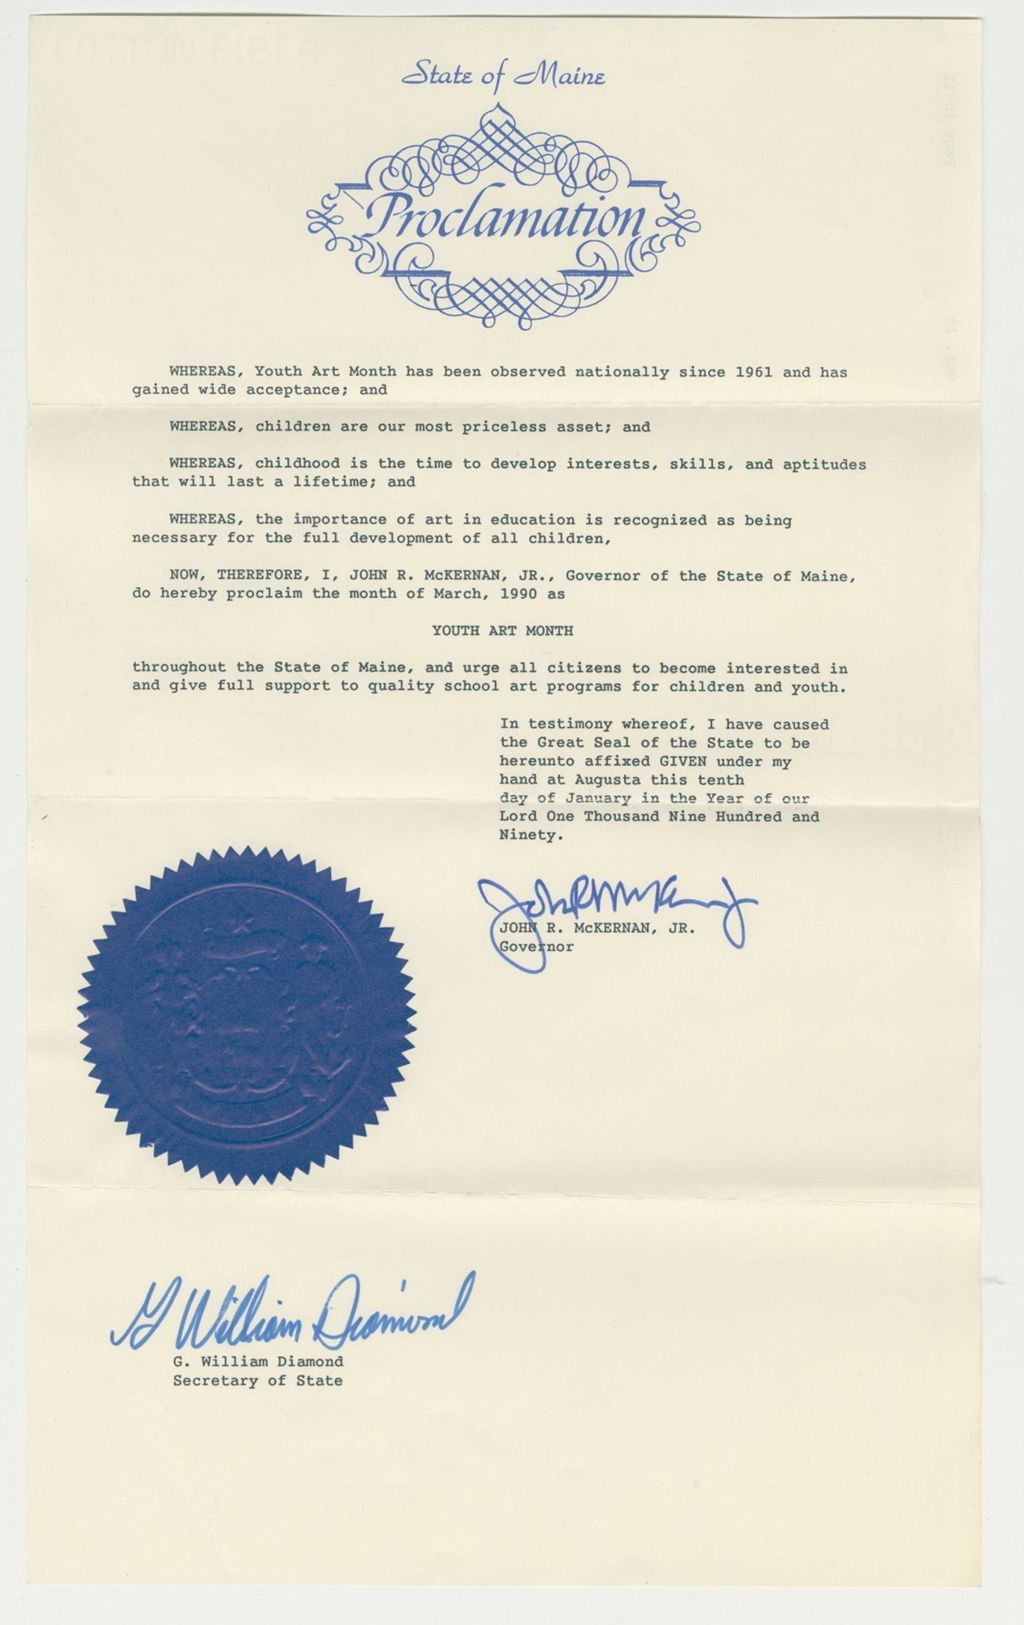 State of Maine
Proclamation
WHEREAS, Youth Art Month has been observed nationally since 1961 and has
gained wide acceptance; and
WHEREAS, children are our most priceless asset; and
WHEREAS, childhood is the time to develop interests, skills, and aptitudes
that will last a lifetime; and
WHEREAS, the importance of art in education is recognized as being
necessary for the full development of all children,
NOW, THEREFORE, I, JOHN R. McKERNAN, JR., Governor of the State of Maine,
do hereby proclaim the month of March, 1990 as
YOUTH ART MONTH
throughout the State of Maine, and urge all citizens to become interested in
and give full support to quality school art programs for children and youth.
In testimony whereof, I have caused
the Great Seal of the State to be
hereunto affixed GIVEN under my
hand at Augusta this tenth
day of January in the Year of our
Lord One Thousand Nine Hundred and
Ninety.
John R McKernan Jr
JOHN R. McKERNAN, JR.
Governor
G William Diamond
G. William Diamond
Secretary of State